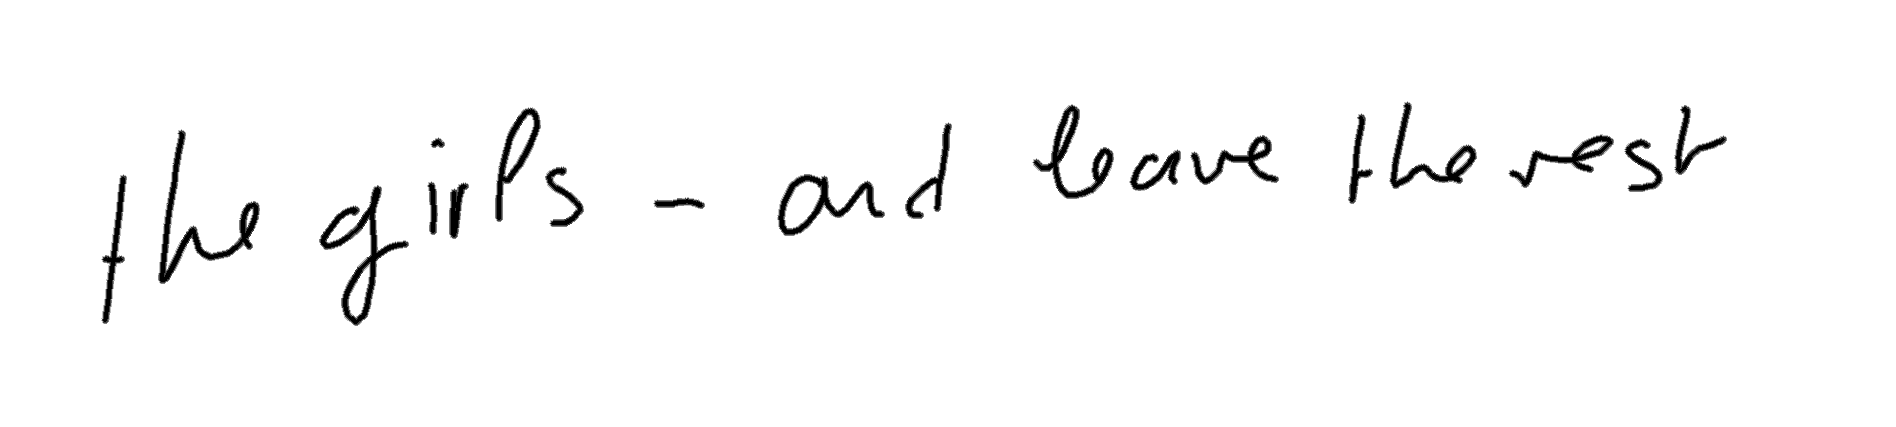 the girls - and leave the rest